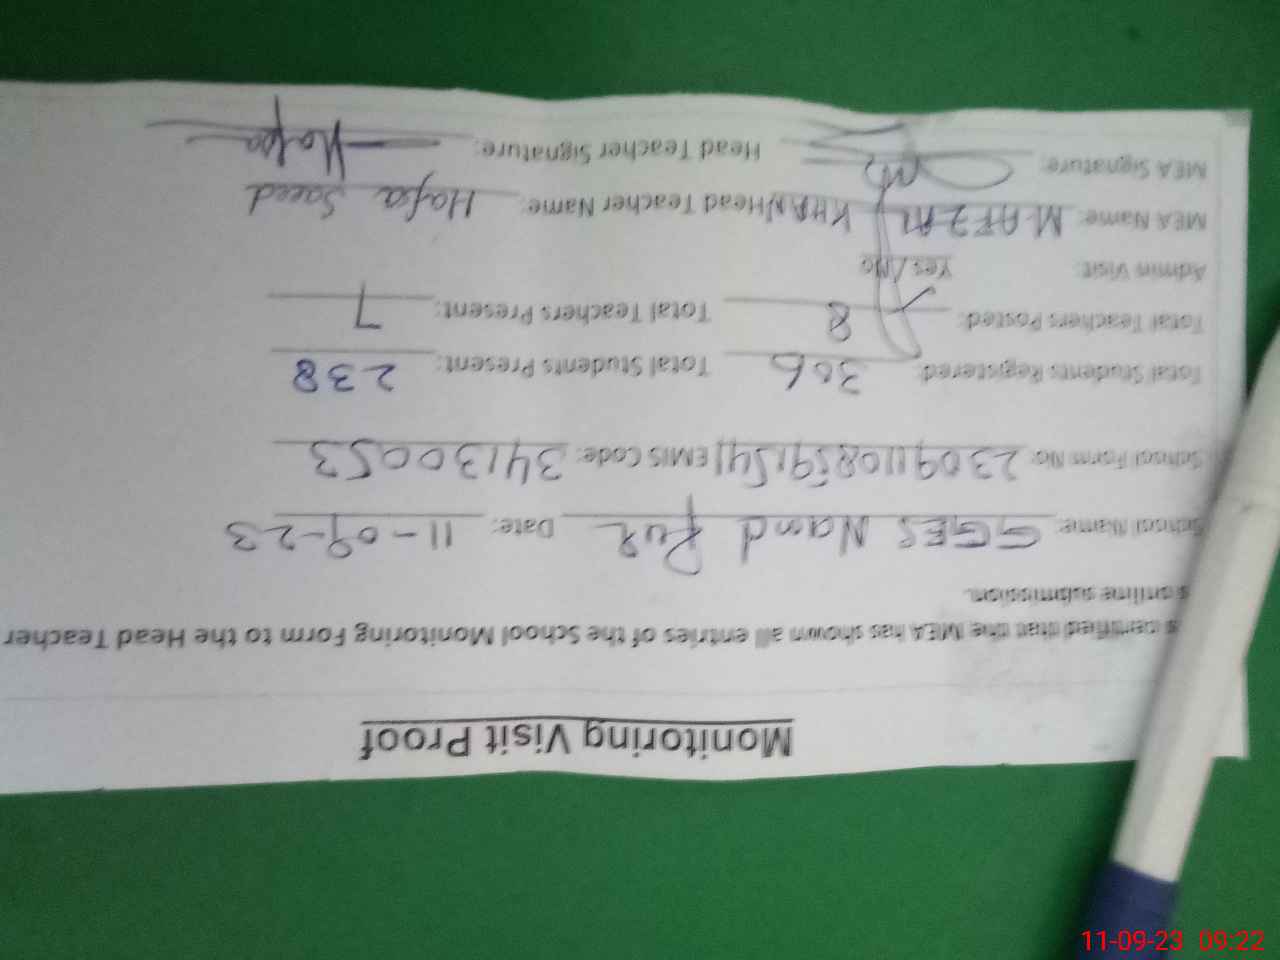 Monitoring Visit Proof
s certified that the MEA has shown all entries of the School Monitoring Form to the Head Teacher
s online submission.
School Name: GGES Nand Pur Date: 11-09-23
School Form No: 23091108591541 EMIS Code: 34130053
Total Students Registered: 306 Total Students Present: 238
Total Teachers Posted: 8 Total Teachers Present: 7
Admin Visit: Yes/No
MEA Name: M AFZAL KHAN Head Teacher Name: Hafsa Saeed
MEA Signature: Head Teacher Signature: Hafsa
11-09-23 09:22